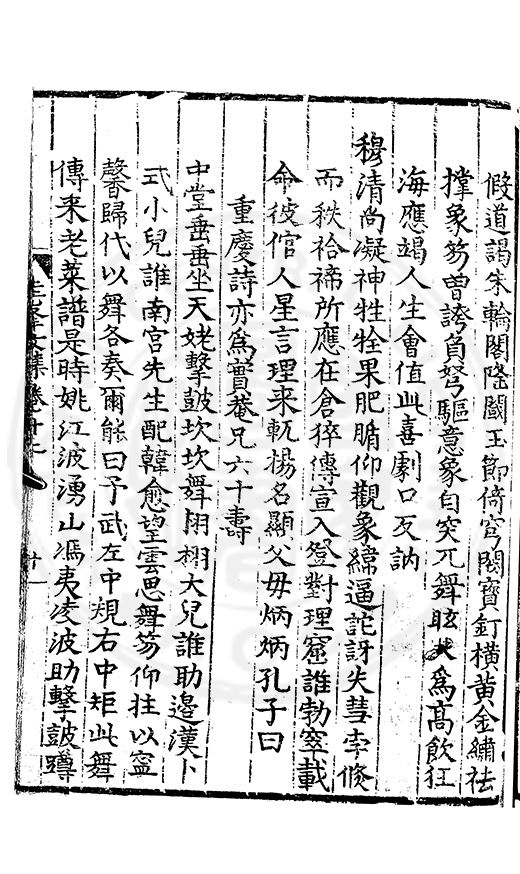 假道謁朱輪閣隆闢玉節倚穹閣寶釘橫黃金繡袪
撐象笏曽誇負弩驅意象自突兀舞眩為髙飲狂
海應竭人生會值此喜劇口反訥
穆清尚凝神牲牷果肥腯仰觀象緯逼詫訝失彗孛倐
而秩祫禘所應在倉猝傳宣入登對理窟誰勃窣載
命彼倌人星言理来軏揚名顯父毋炳炳孔子曰
重慶詩亦為實菴兄六十夀
中堂垂垂坐天姥擊皷坎坎舞栩栩大兒誰助邉漢卜
式小兒誰南宫先生配韓愈望雲思舞笏仰拄以寍
馨歸代以舞各奏爾能曰予武左中規右中矩此舞
傳来老菜譜是時姚江波湧山馮夷凌波助擊皷蹲
文集卷十
十一